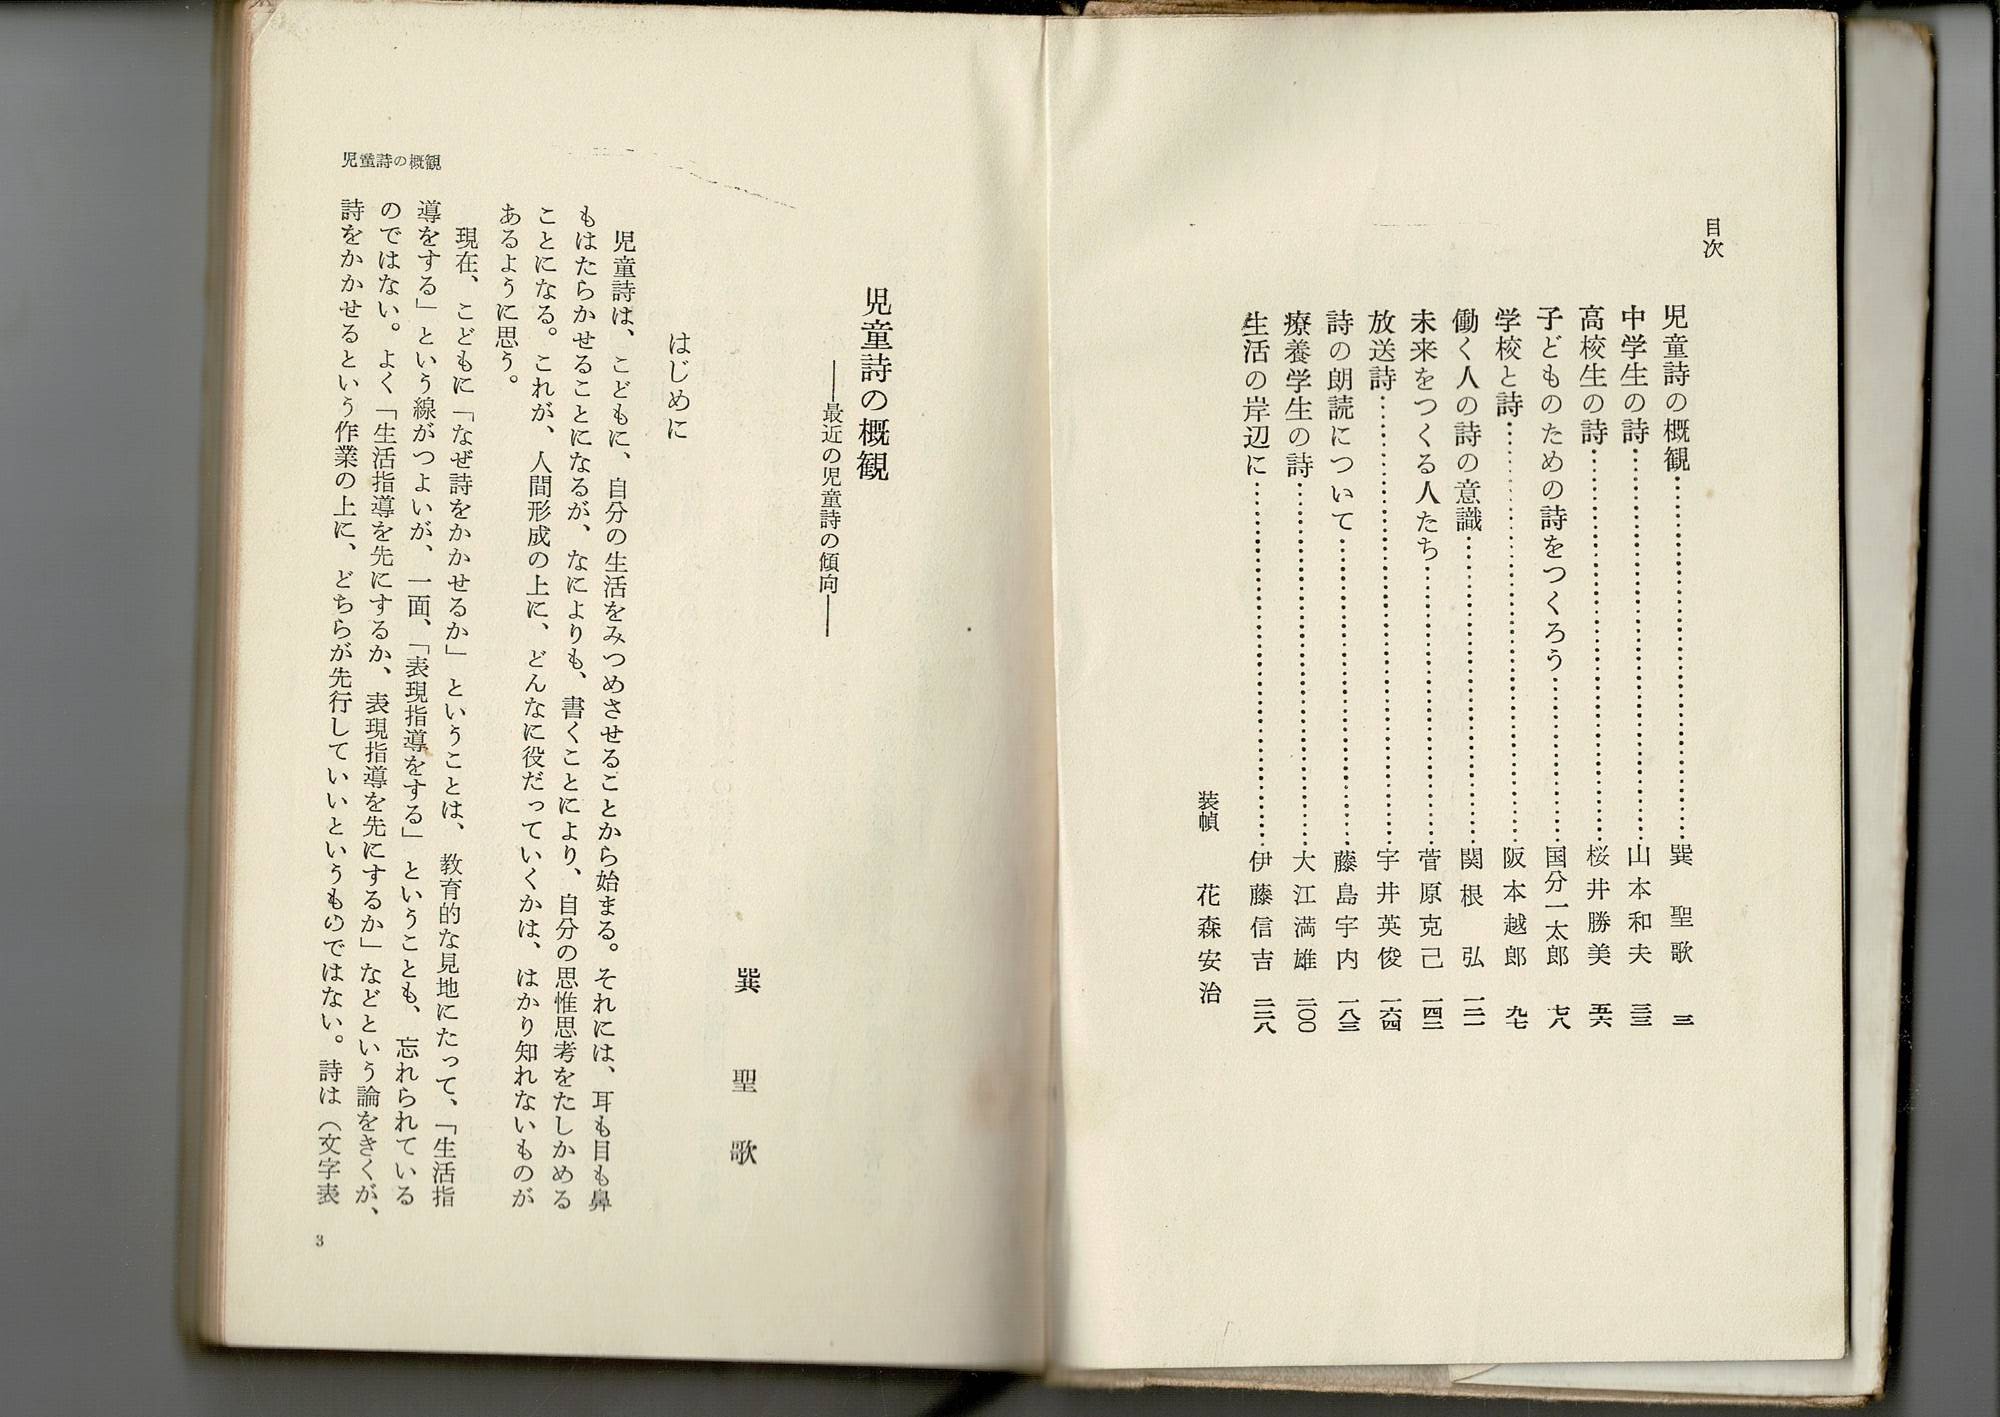 目次
児童詩の概観……巽　聖歌　三
中学生の詩……山本和夫　三三
高校生の詩……桜井勝美　五六
子どものための詩をつくろう……国分一太郎　七八
学校と詩……阪本越郎　九七
働く人の詩の意識……関根　弘　一二一
未来をつくる人たち……菅原克己　一四二
放送詩……宇井英俊　一六四
詩の朗読について……藤島宇内　一八三
療養学生の詩……大江満雄　二〇〇
生活の岸辺に……伊藤信吉　二二八
装幀　花森安治
児童詩の概観
――最近の児童詩の傾向――
巽　聖　歌
はじめに
児童詩は、こどもに、自分の生活をみつめさせることから始まる。それには、耳も目も鼻
もはたらかせることになるが、なによりも、書くことにより、自分の思惟思考をたしかめる
ことになる。これが、人間形成の上に、どんなに役だっていくかは、はかり知れないものが
あるように思う。
現在、こどもに「なぜ詩をかかせるか」ということは、教育的な見地にたって、「生活指
導をする」という線がつよいが、一面、「表現指導をする」ということも、忘れられている
のではない。よく「生活指導を先にするか、表現指導を先にするか」などという論をきくが、
詩をかかせるという作業の上に、どちらが先行していいというものではない。詩は（文字表
児童詩の概観
3